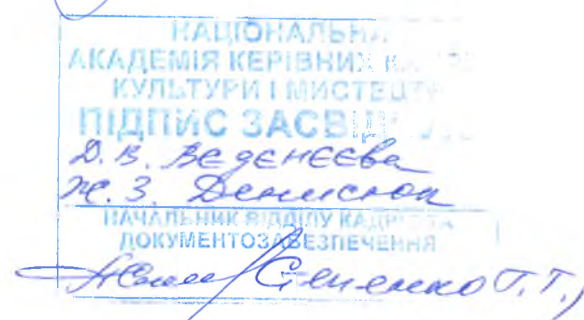 НАЦІОНАЛЬНА
АКАДЕМІЯ КЕРІВНИХ
КУЛЬТУРИ І МИСТЕЦТВ
ПІДПИС ЗАСВІДЧУЮ
Д. В. Веденеєва
Ж. З. Денисюк
НАЧАЛЬНИК ВІДДІЛУ КАДРІВ ТА
ДОКУМЕНТОЗАБЕЗПЕЧЕННЯ
Т.Т.